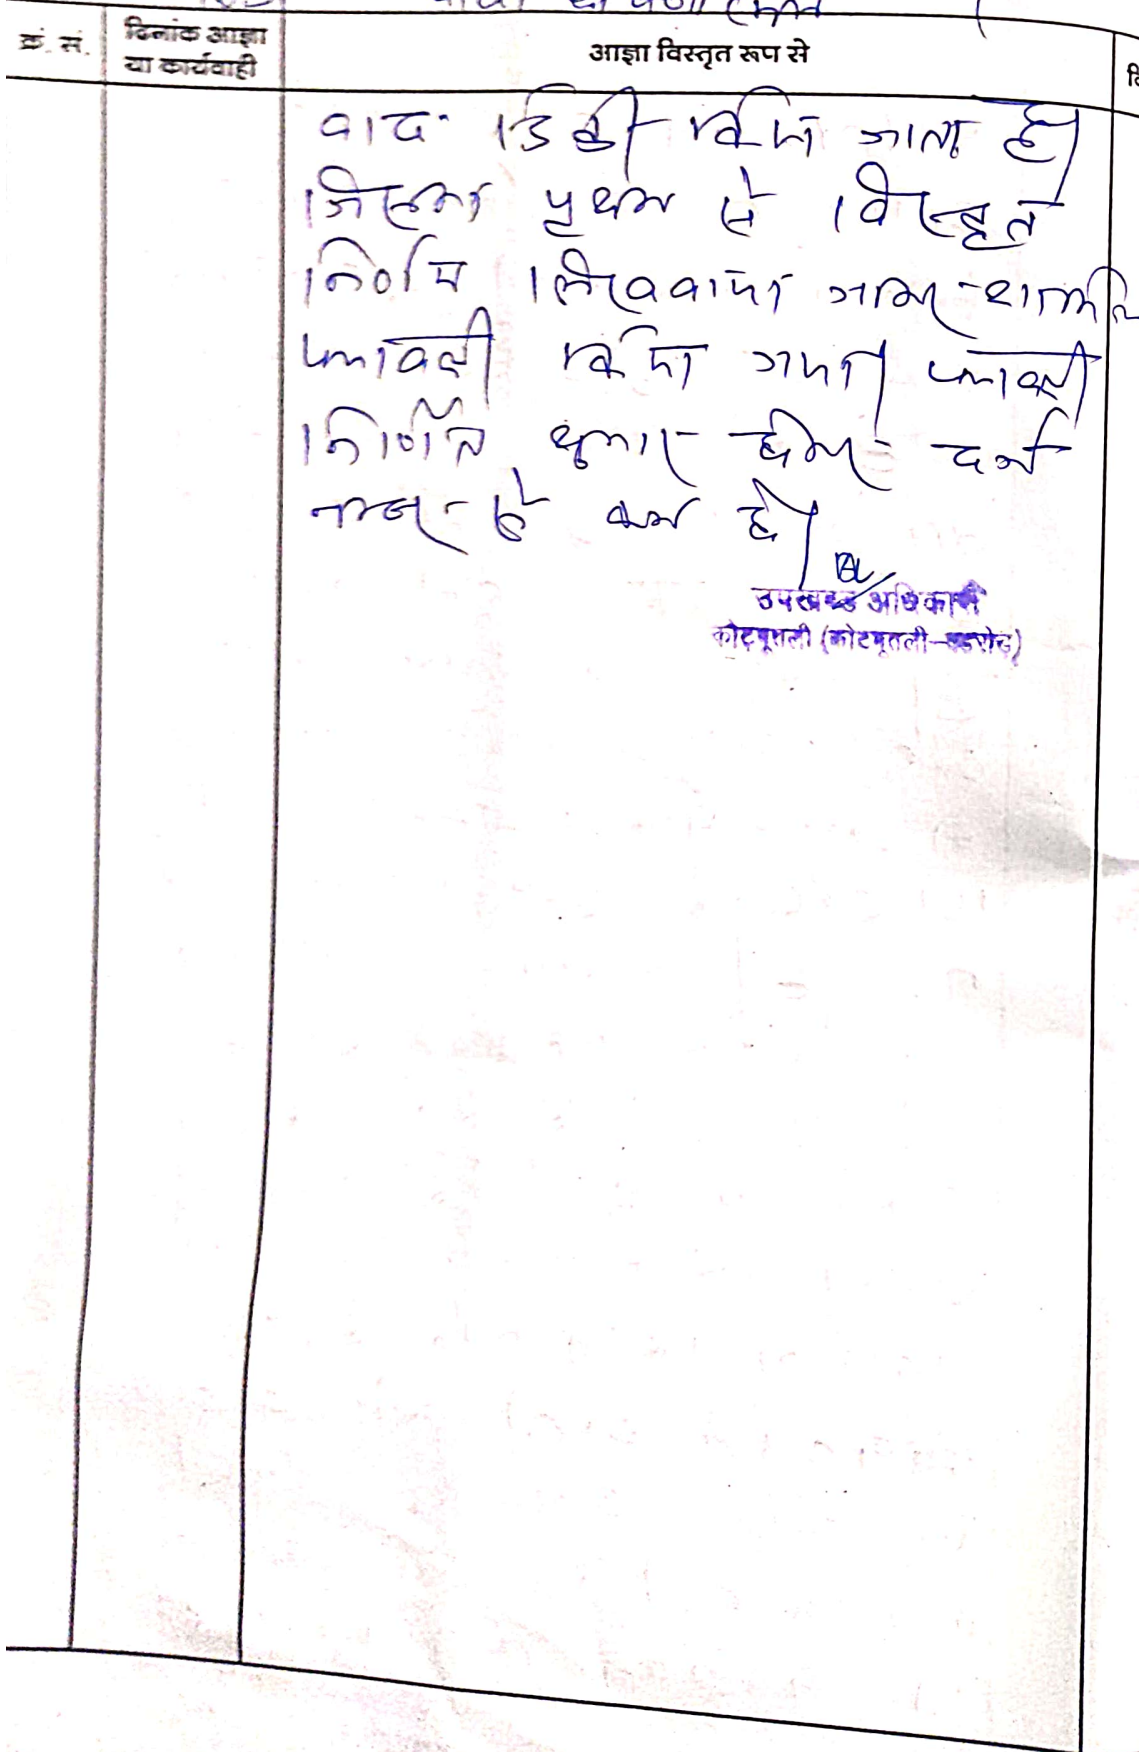 क्रं. सं.
दिनांक आज्ञा
या कार्यवाही
आज्ञा विस्तृत रूप से
वाद डिक्री किया जाता है।
जिसका पृथक से विस्तृत
निर्णय लिखवाया जाकर शामिल
पत्रावली किया गया। पत्रावली
निर्णित शुमार होकर दर्ज
नम्बर से कम हो।
उपखण्ड अधिकारी
कोटपूतली (कोटपूतली-बहरोड़)